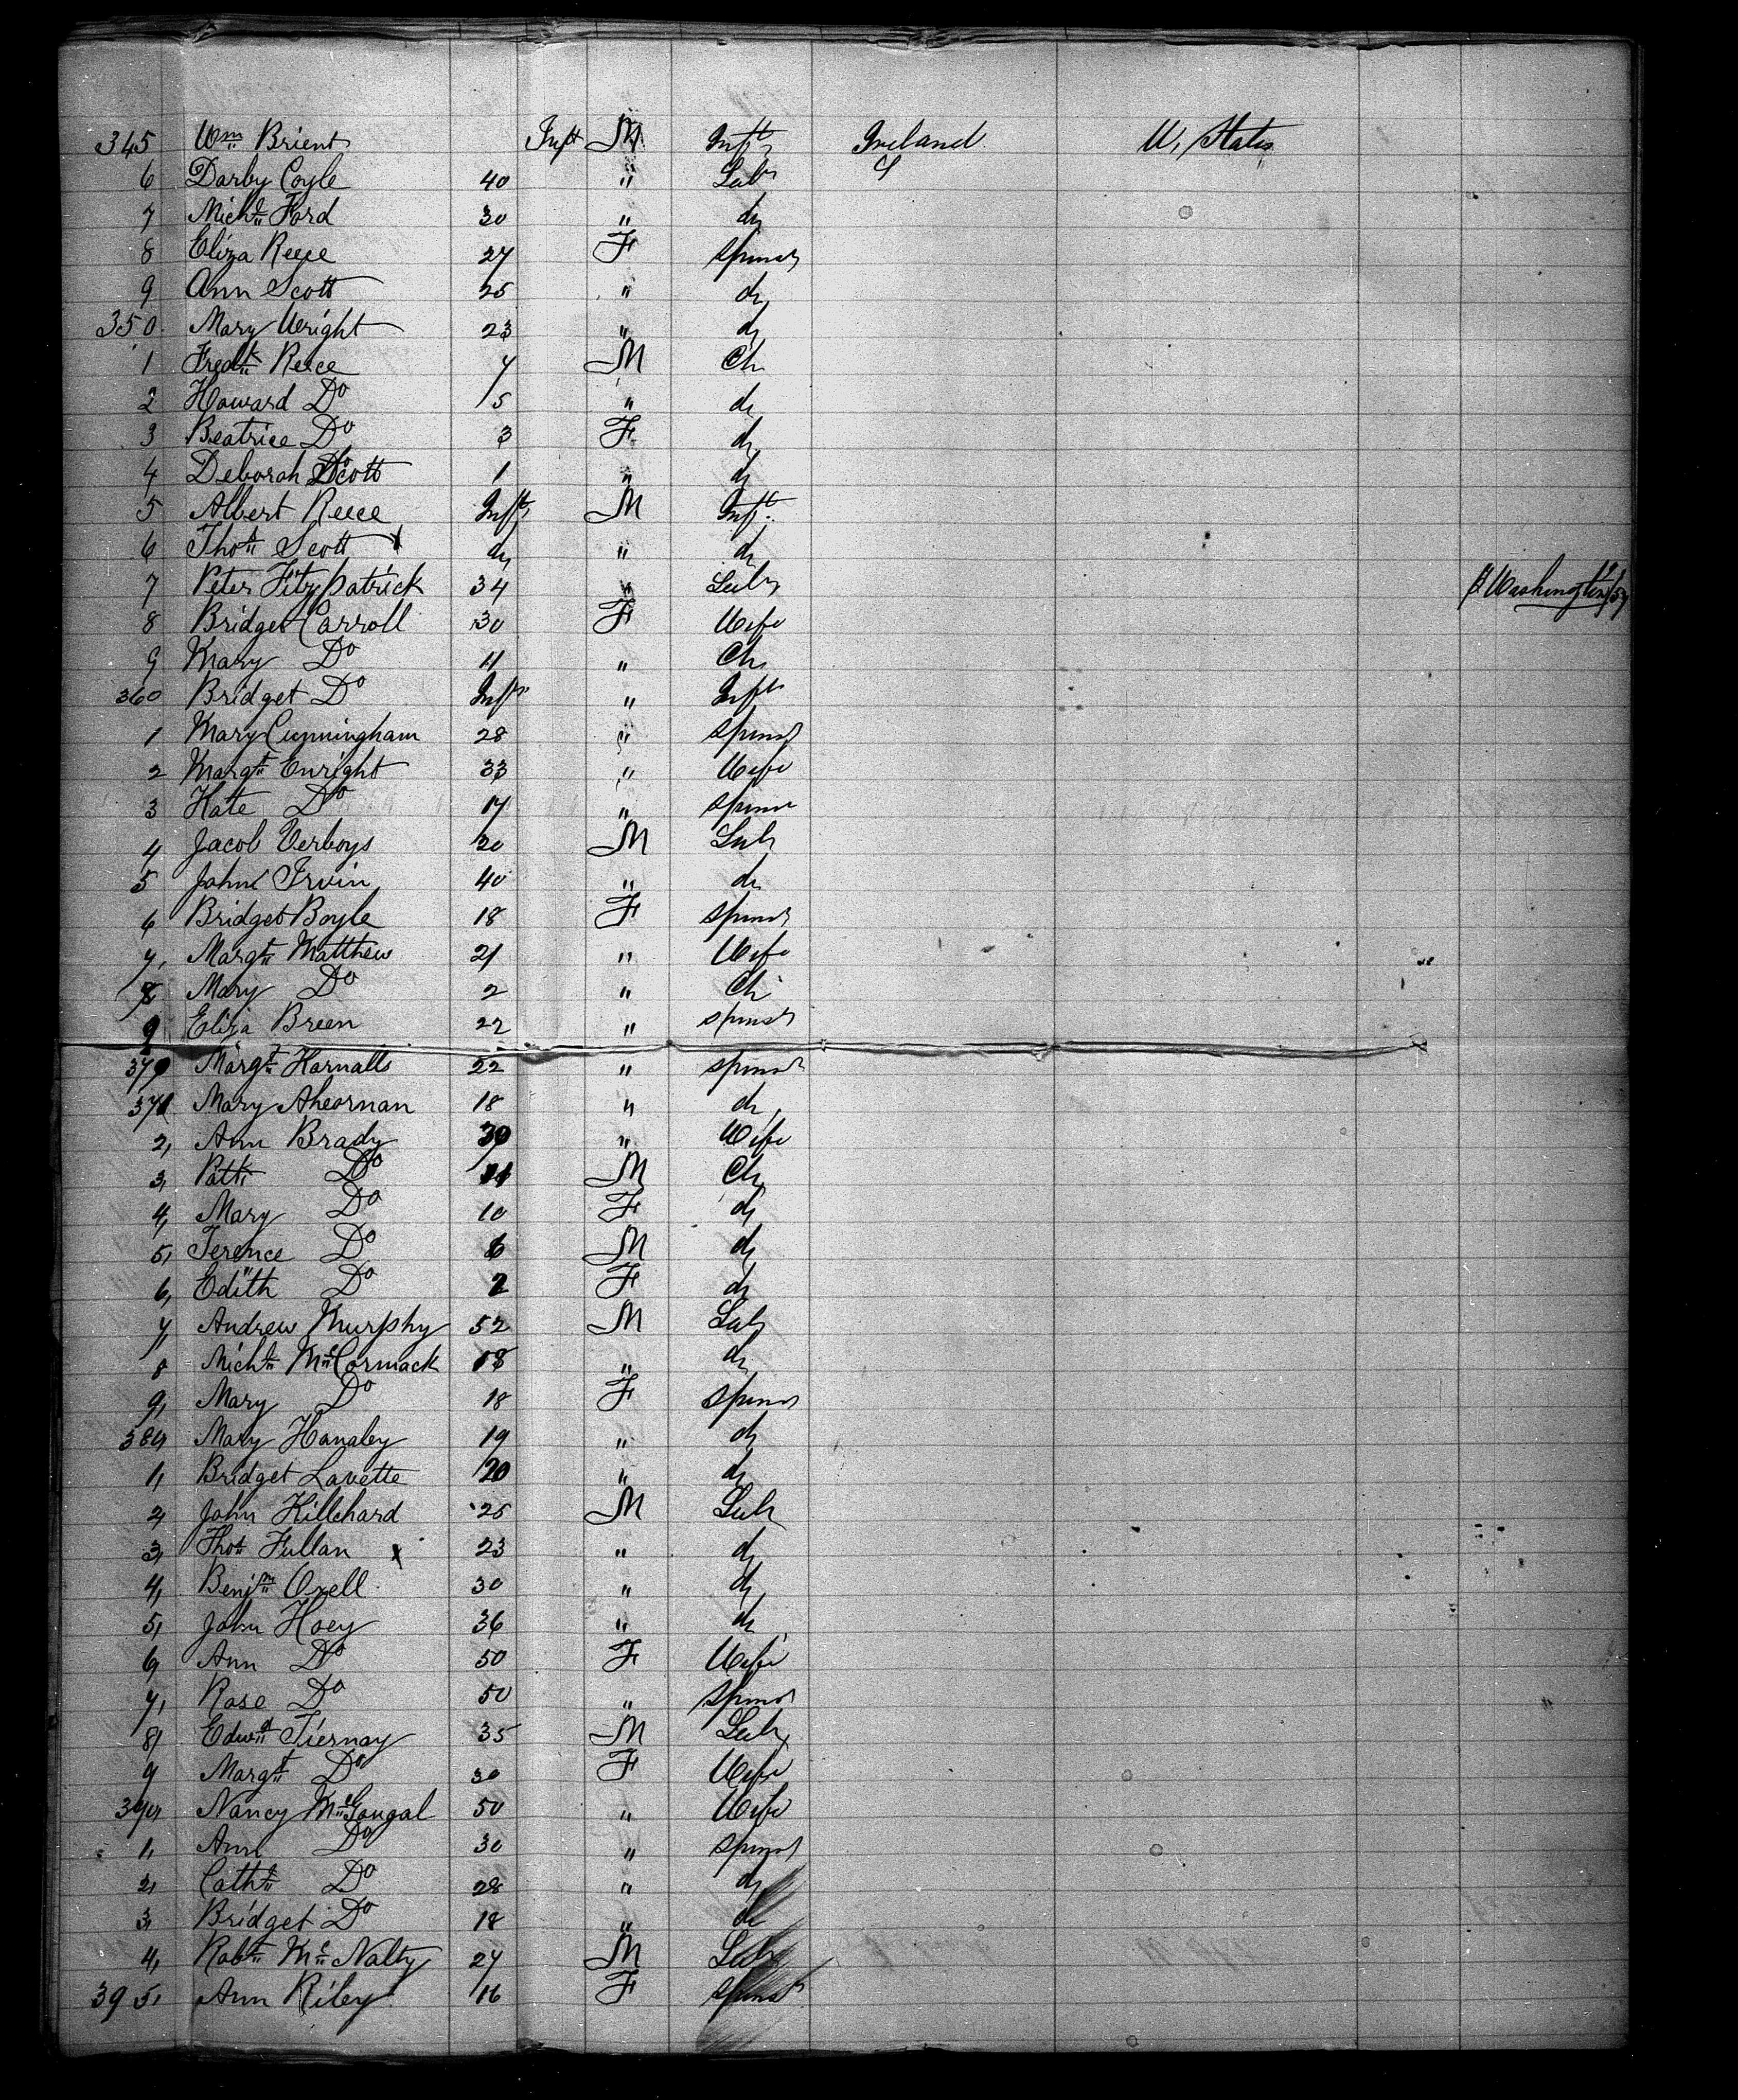 345 Wm Brient Inft M Inft Ireland U, States
6 Darby Coyle 40 " Labr
7 Michl Ford 30 " do
8 Eliza Reece 27 F Spinst
9 Ann Scott 25 " do
350 Mary Wright 23 " do
1 Fredk Reece 7 M Ch
2 Howard Do 5 " do
3 Beatrice Do 3 F do
4 Deborah Scott 1 " do
5 Albert Reece Inft M Inft
6 Thos Scott x do " do
7 Peter Fitzpatrick 34 " Labr
8 Bridget Carroll 30 F Wife
9 Mary Do 11 " Ch
360 Bridget Do Inft " Inft
1 Mary Cunningham 28 " Spinst
2 Margt Enright 33 " Wife
3 Kate Do 17 " Spinst
4 Jacob Verboys 20 M Labr
5 John Irvin 40 " do
6 Bridget Boyle 18 F Spinst
7, Margt Matthew 21 " Wife
8 Mary Do 2 " Ch
9 Eliza Breen 22 " Spinst
370 Margt Harnatts 22 " Spinst
371 Mary Aheornan 18 " do
2, Ann Brady 30 " Wife
3, Patk Do 11 M Ch
4, Mary Do 10 F do
5, Terence Do 6 M do
6, Edith Do 2 F do
7, Andrew Murphy 52 M Labr
8 Michl McCormack 18 " do
9, Mary Do 18 F Spinst
380, Mary Hanaley 19 " do
1, Bridget Lavette 20 " do
2, John Killchard 25 M Labr
3, Thos Fullan x 23 " do
4, Benjm Orell 30 " do
5, John Hoey 36 " do
6, Ann Do 50 F Wife
7, Rose Do 50 " Spinst
8, Edwd Tiernay 35 M Labr
9 Margt Do 30 F Wife
390, Nancy McGougal 50 " Wife
1, Ann Do 30 " Spinst
2, Cathe Do 28 " do
3, Bridget Do 18 " do
4, Robt McNalty 27 M Labr
395, Ann Riley 16 F Spinst
Washington